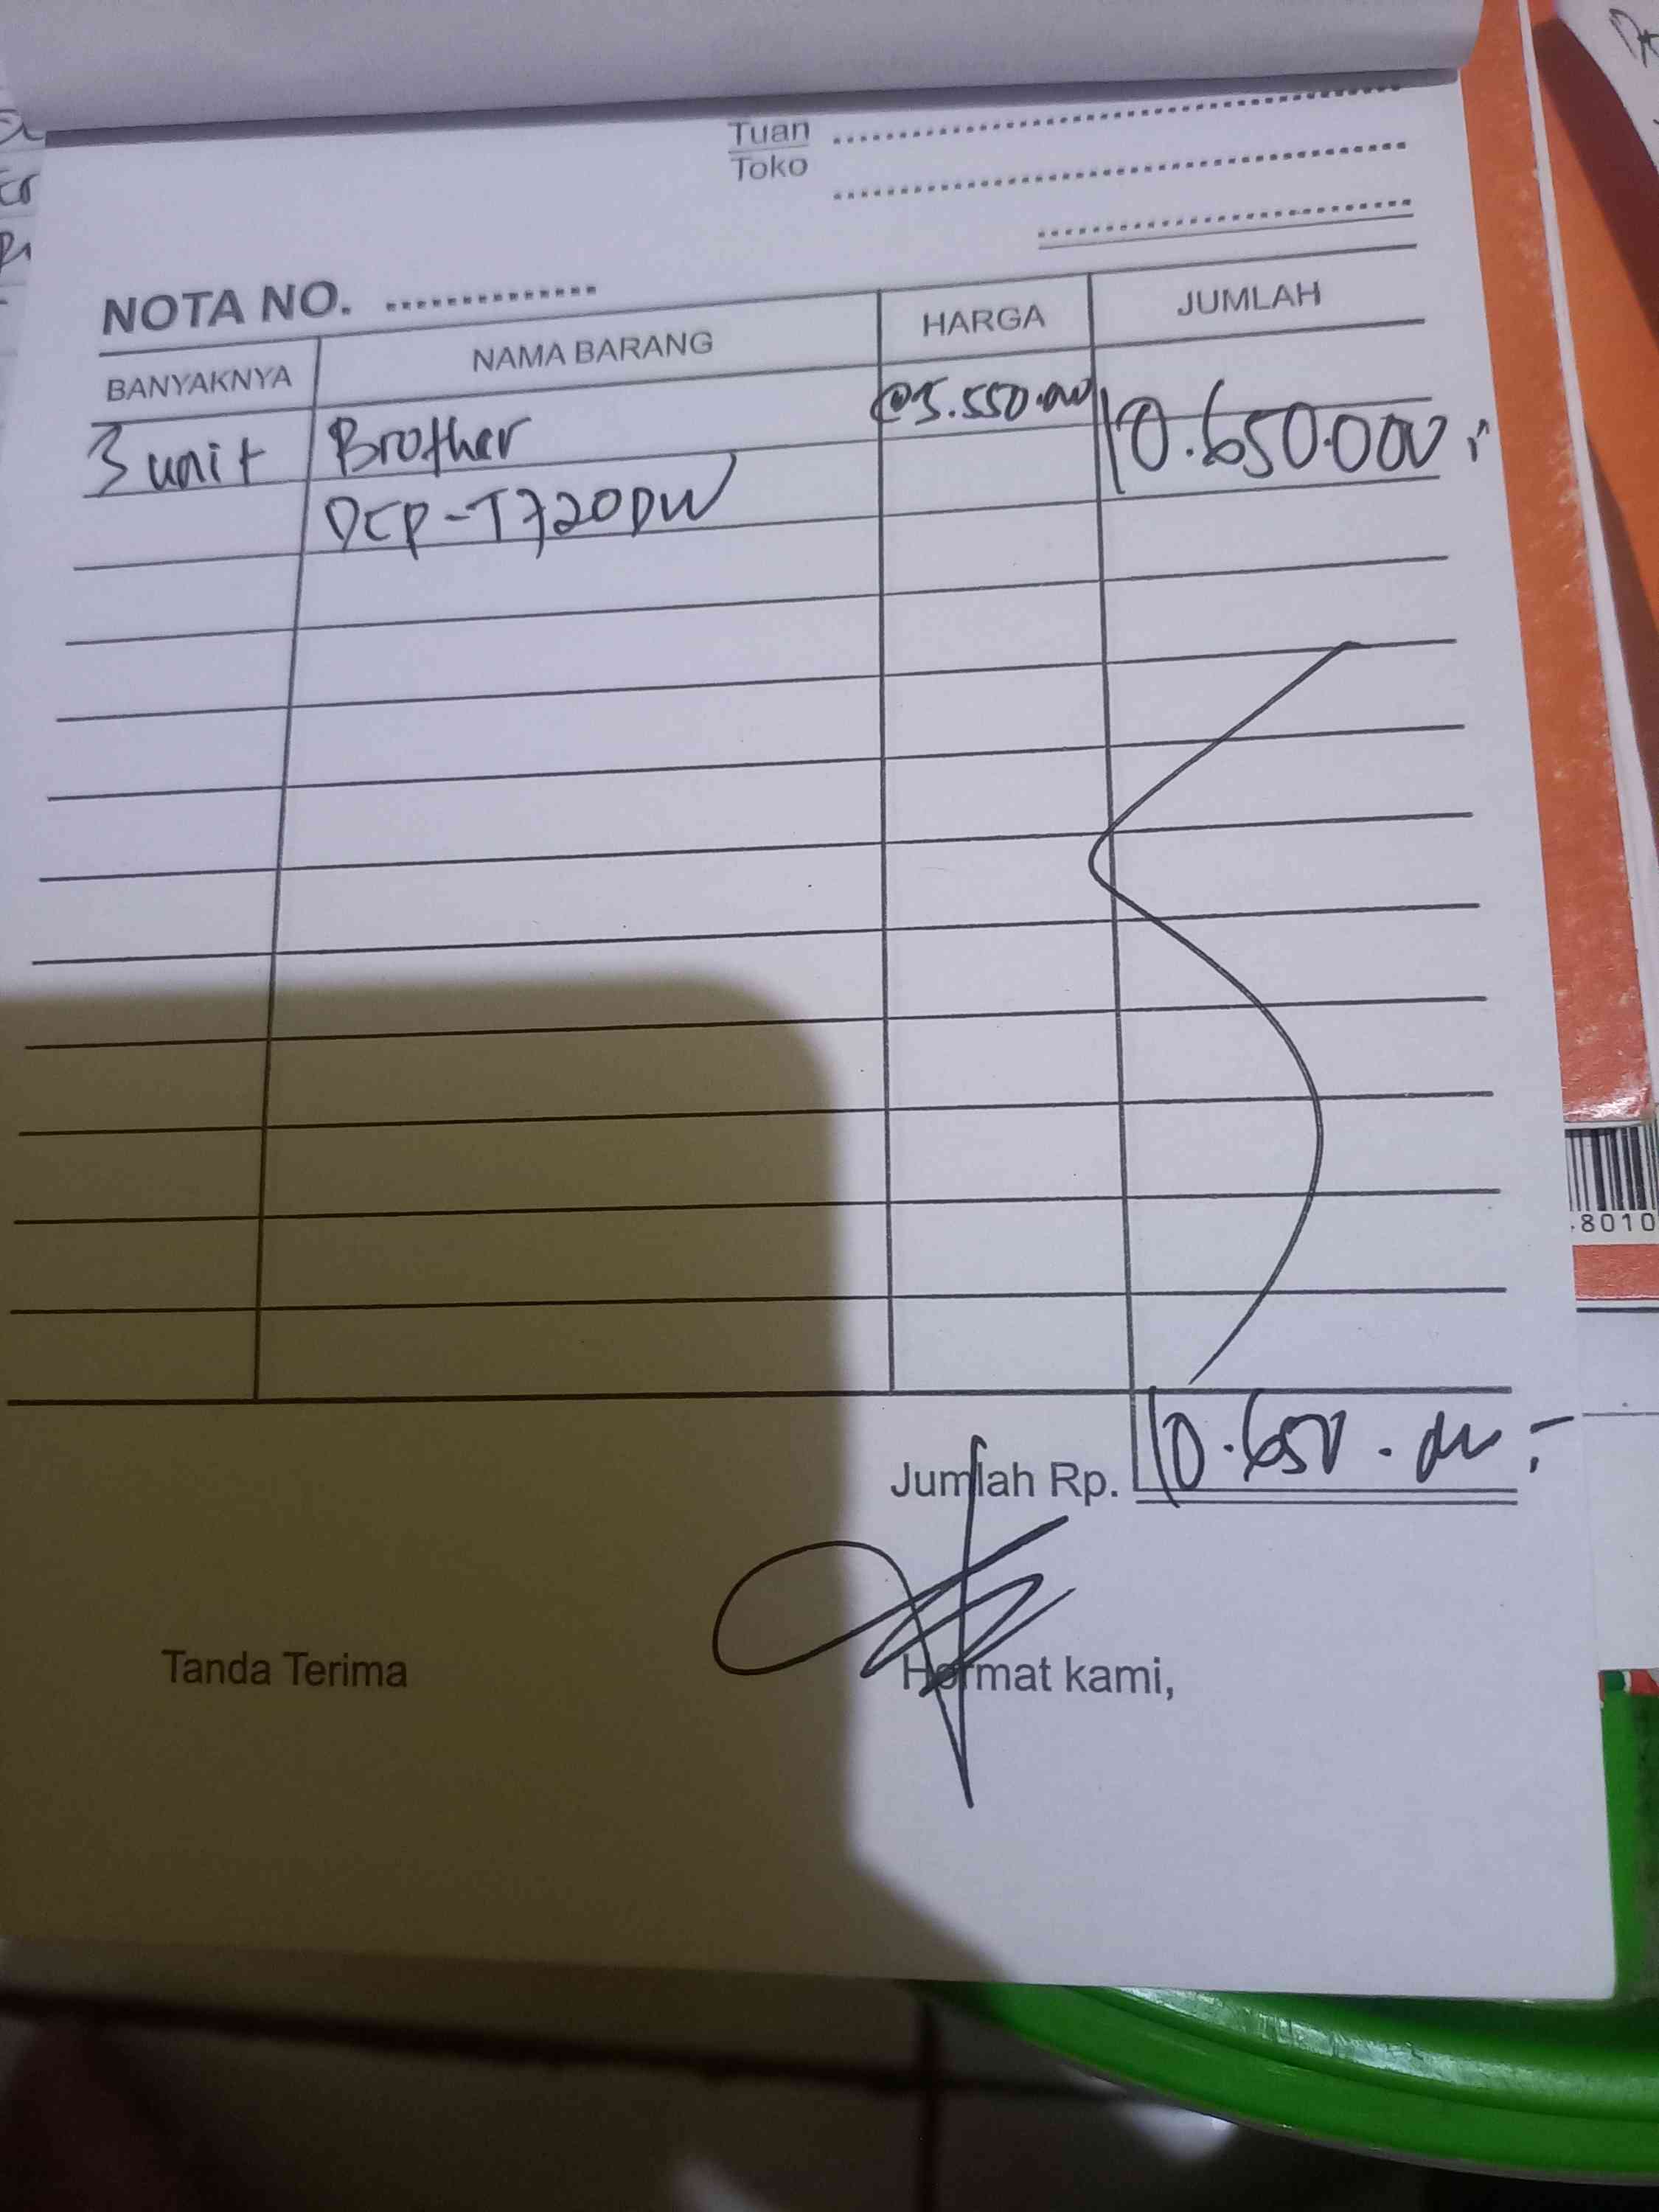 Tuan
Toko
NOTA NO.
BANYAKNYA NAMA BARANG HARGA JUMLAH
3 unit Brother @3.550.000 10.650.000,-
DCP-T720DW
Jumlah Rp. 10.650.000,-
Tanda Terima Hormat kami,
8010